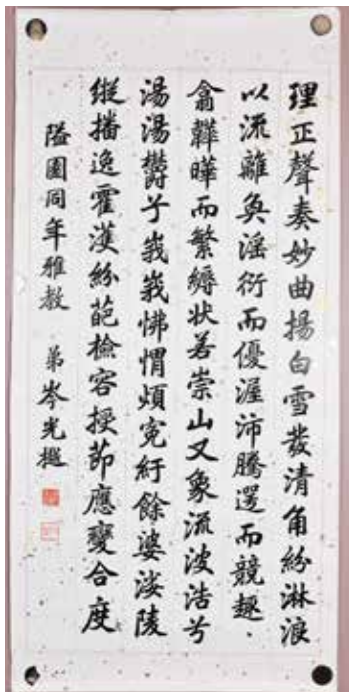 理正聲奏妙曲揚白雪發清角紛淋浪
以流離奐滛衍而優渥沛騰遌而競趣
翕韡曄而繁縟状若崇山又象流波浩兮
湯湯欝兮峩峩怫㥜煩寃紆餘婆娑陵
縱播逸霍濩紛葩檢容授節應變合度
隘園同年雅教 弟岑光樾